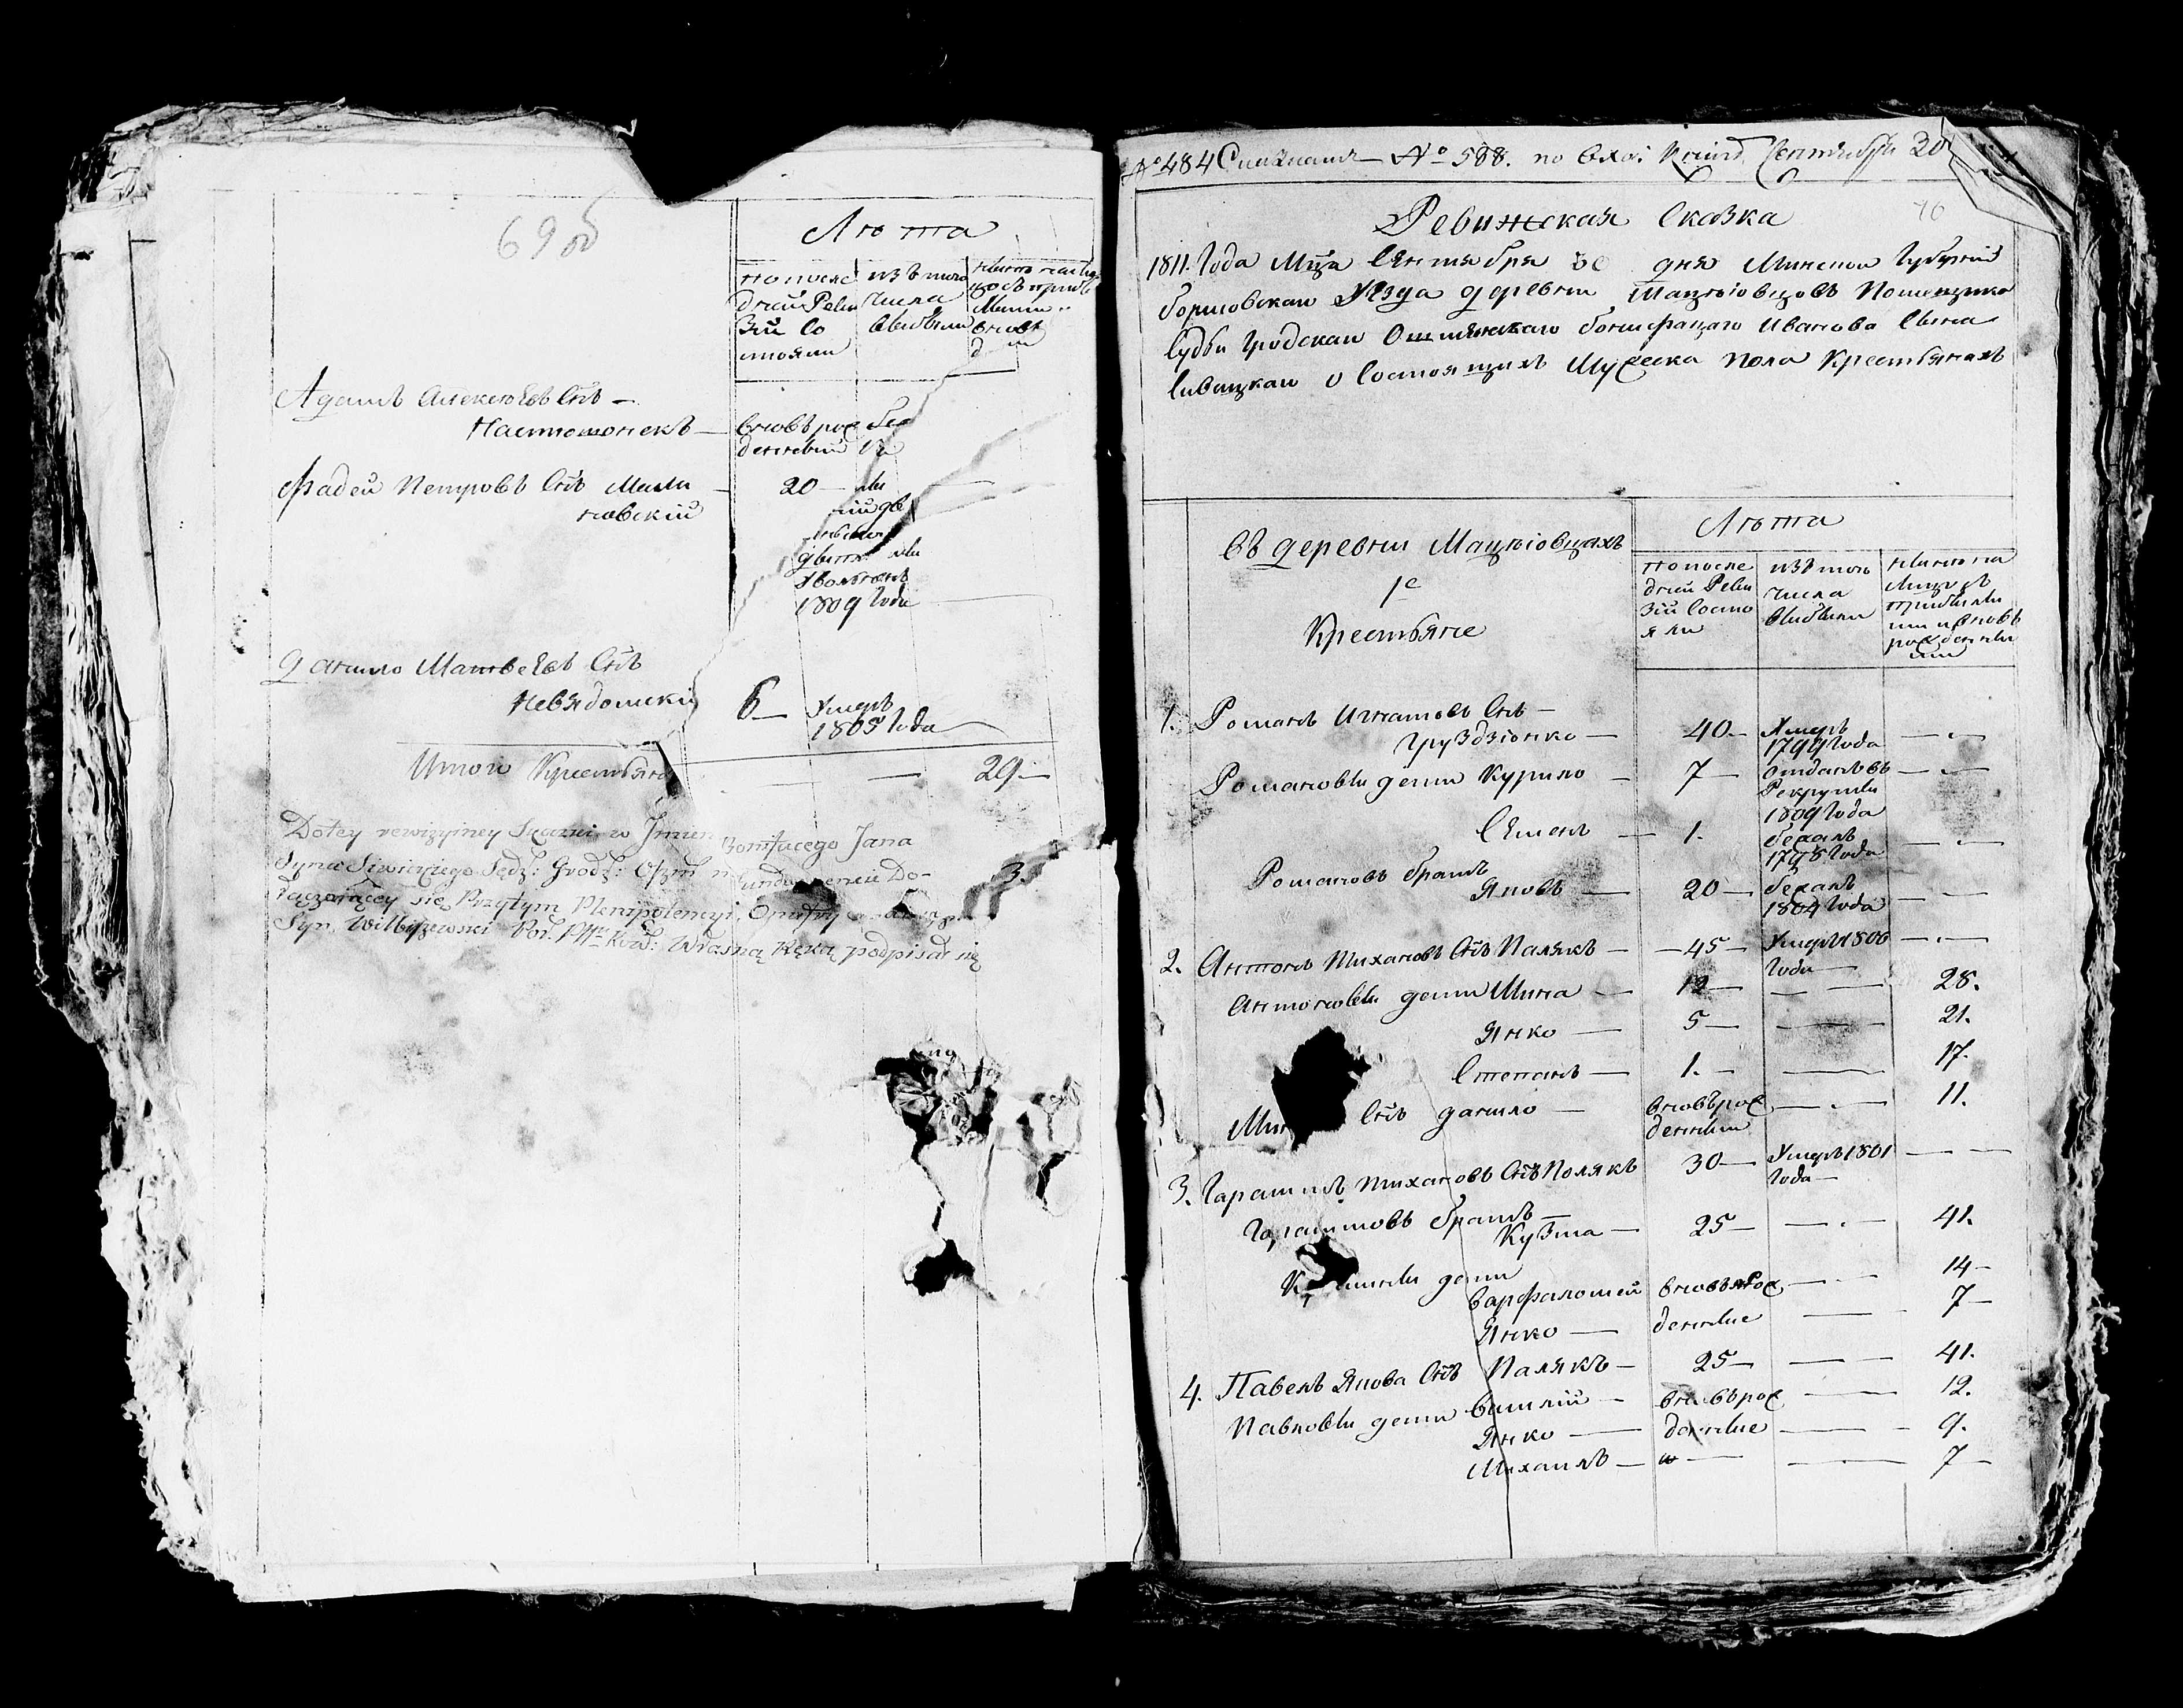 69 об
Лѣта
по после
дней Реви
зiи Со
стояли
изъ того
числа
выбыли
Адамъ Алексѣевъ Снъ —
Настюшонекъ —
вновь рож
денный
Фадей Петровъ Снъ Мали
новскiй
20 —
1809 Года
Данило Матвеевъ Снъ
Невядомскiй
6 —
Умеръ
1805 Года
Итого Крестьянъ — 29 —
Do tey rewizyiney Skazki w Jmien Bonifacego Jana
Syna Siwickiego Sędz: Grodz: Oszm:
łączaiącey się Przytym Plenipotencyi,
Syn Wilbiszewski Własną Ręką podpisał się
№ 484 Сказка № 588. по вход Книг Сентября 30
70
Ревижская Сказка
1811. Года Мца Сентября 30 дня Минской Губернiи
Борисовскаи Уезда деревни Мацѣiовцовъ Помещика
Судьи Гродскаи Ошмянскаго Бонифацаго Иванова Сына
Сивицкаи о Состоящихъ Мужеска пола Крестьянахъ
въ деревни Мацѣiовцахъ
Крестьяне
Лѣта
по после
дней Реви
зiи Состо
яли
изъ того
числа
выбыли
1. Романъ Игнатовъ Снъ —
Груздзiонко — 40 — Умеръ
1799 Года
Романовы дети Курило — 7 — отданъ въ
Рекруты
1809 Года
Семенъ — 1. бежалъ
1798 Года
Романовъ братъ
Яковъ — 20 — бежалъ
1804 Года
2. Антонъ Тихановъ Снъ Палякъ — 45 — Умеръ 1806
Года —
Антоновы дети Мина — 12 — 28.
Янко — 5 — 21.
Степанъ — 1. — 17.
Мин Снъ данило — вновь рож 11.
денны
3. Гарашимъ Тихановъ Снъ Полякъ 30 — Умеръ 1801
Года —
Гарашимовъ братъ —
Кузма — 25 — 41.
дети
варфаломей вновь рож 14 —
Янко — денные 7 —
4. Павелъ Якова Снъ Палякъ — 25 — 41.
Павловы дети василiй — вновь рож 12.
Янко — денные 9.
Михаилъ — 7 —